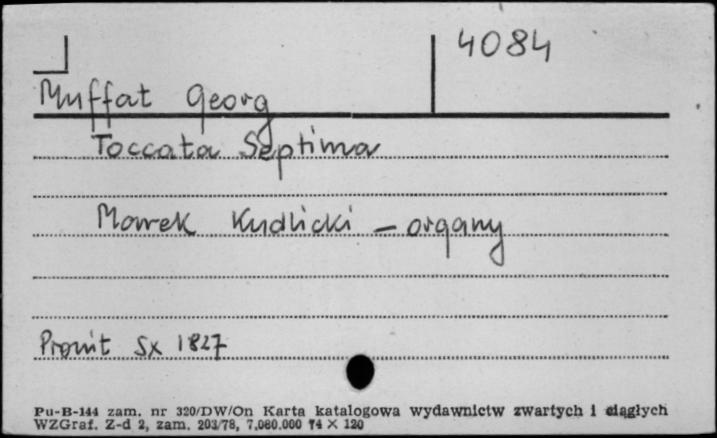 4084
Muffat Georg
Toccata Septima
Marek Kudlicki - organy
Pronit Sx 1827
Pu-B-144 zam. nr 320/DW/On Karta katalogowa wydawnictw zwartych i ciągłych
WZGraf. Z-d 2, zam. 203/78, 7.080.000 74 X 120